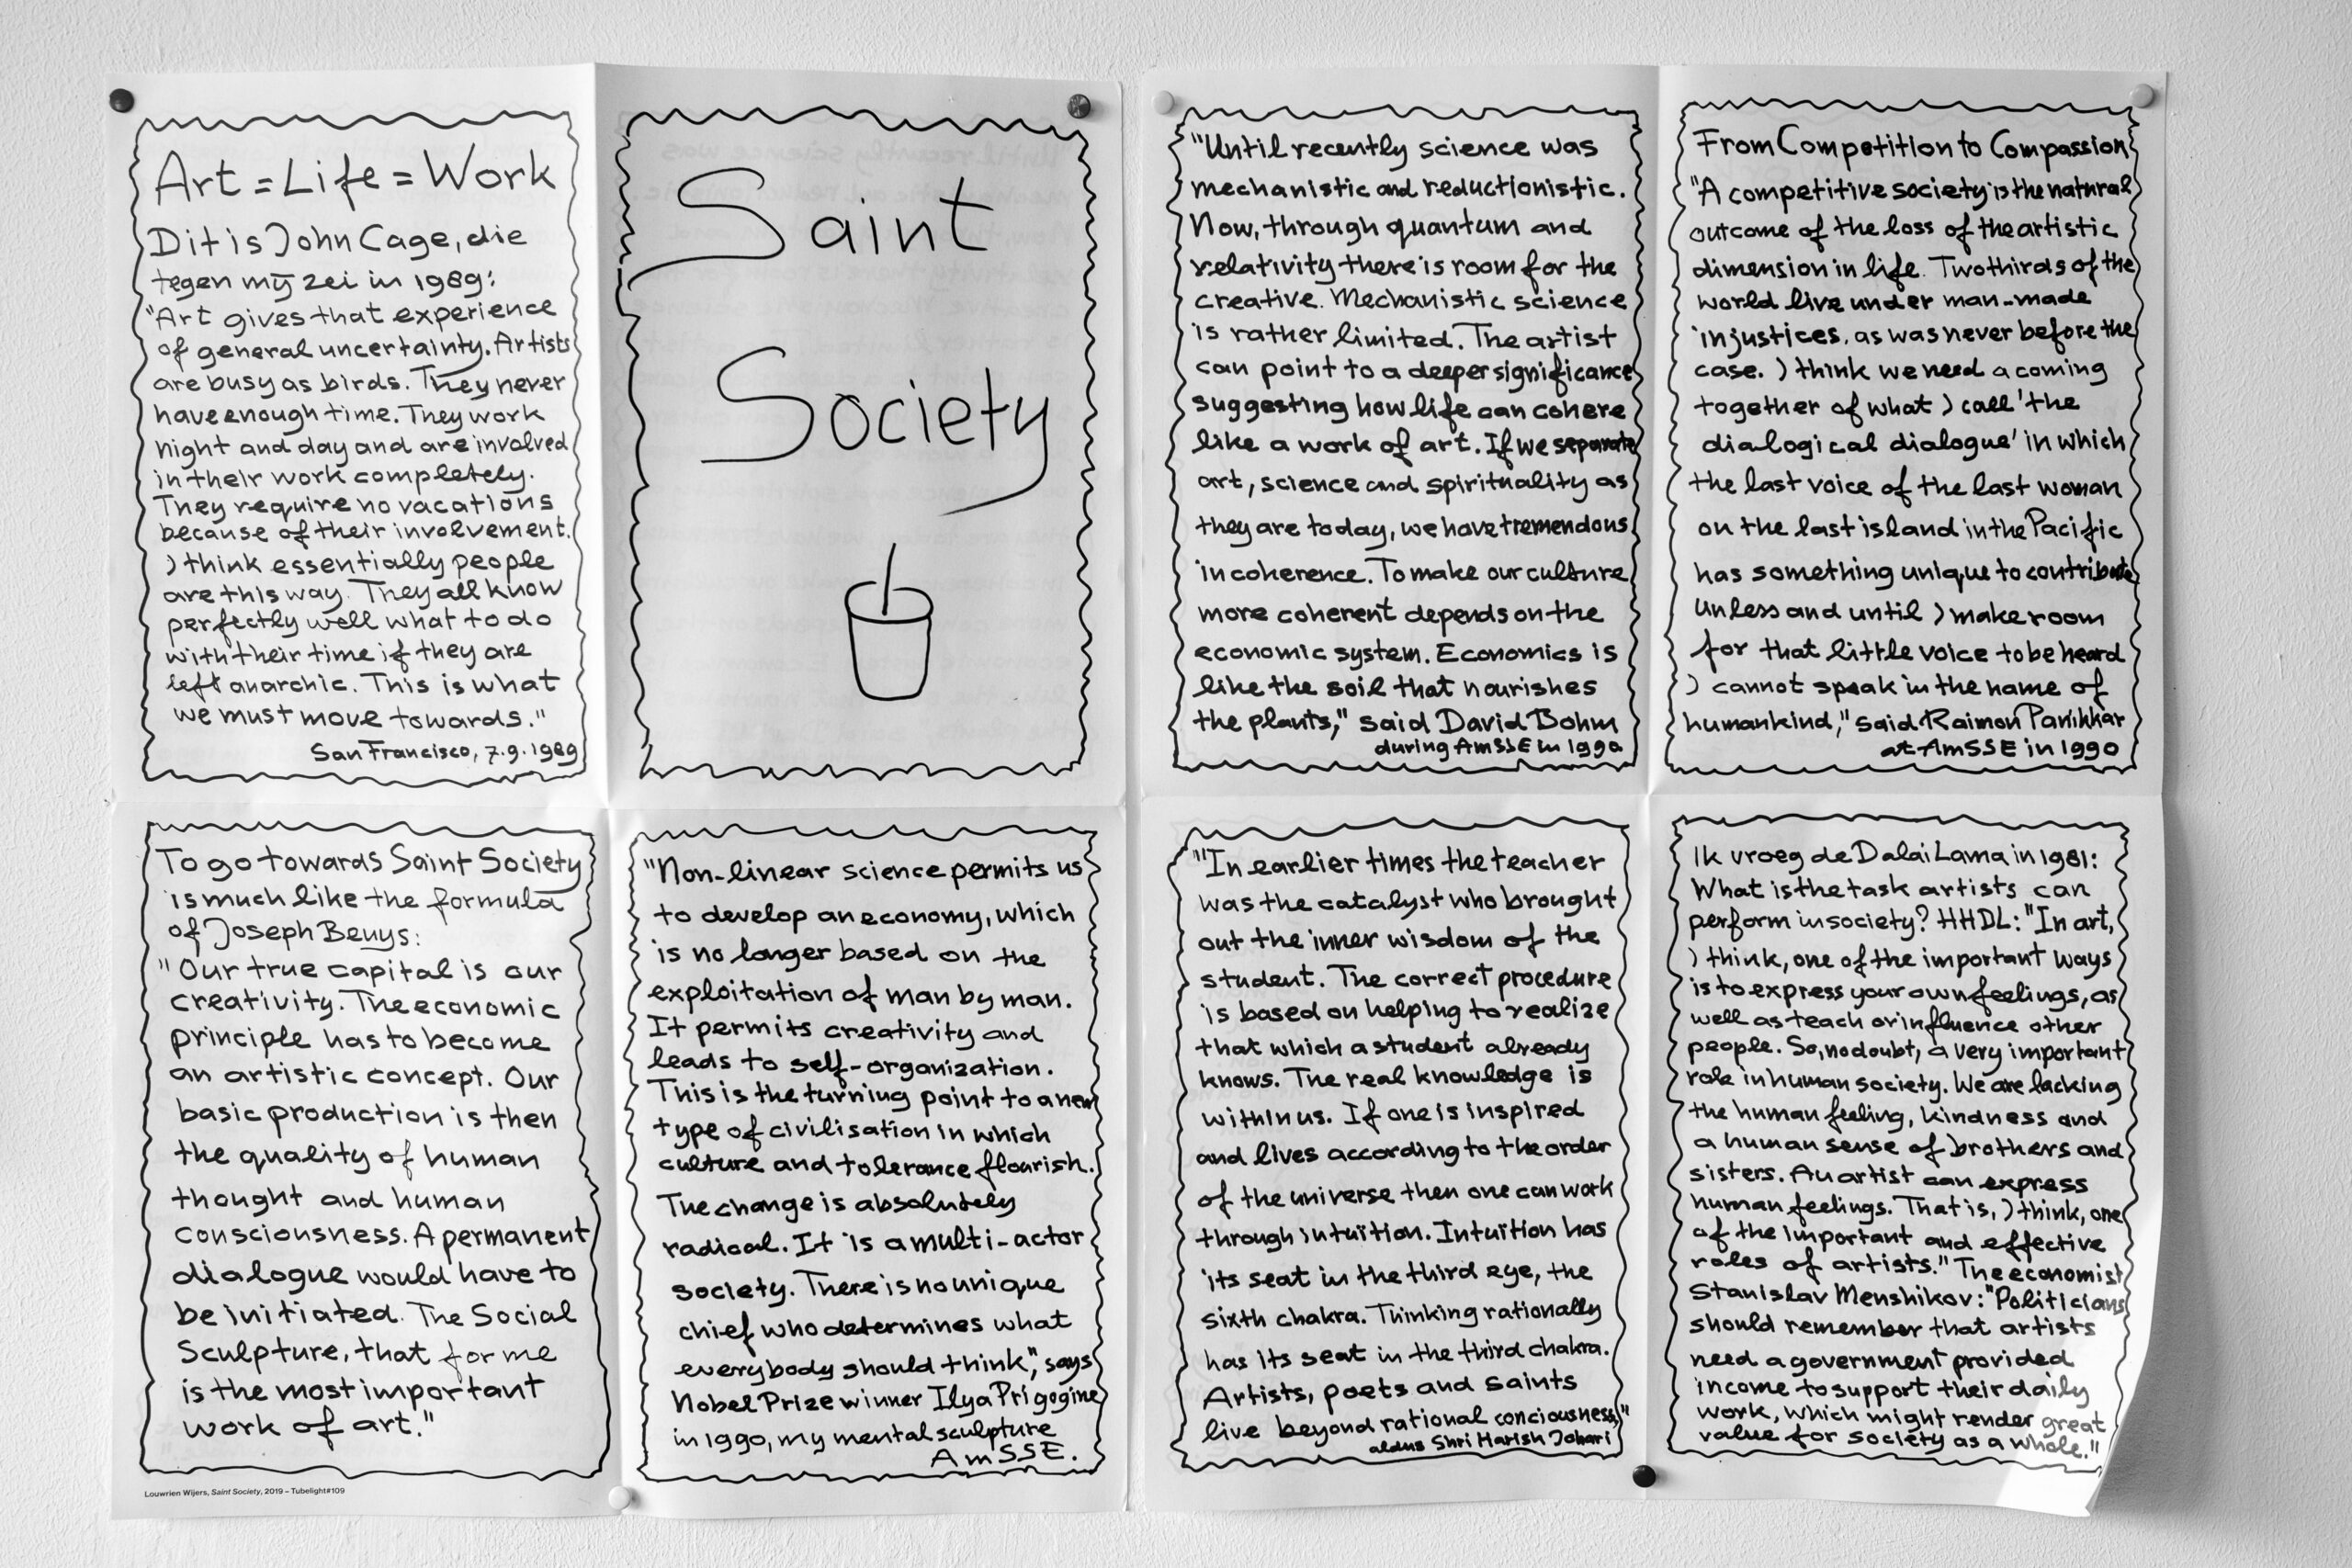 Art = Life = Work
Dit is John Cage, die
tegen mij zei in 1989:
"Art gives that experience
of general uncertainty. Artists
are busy as birds. They never
have enough time. They work
night and day and are involved
in their work completely.
They require no vacations
because of their involvement.
I think essentially people
are this way. They all know
perfectly well what to do
with their time if they are
left anarchic. This is what
we must move towards."
San Francisco, 7.9.1989
Saint
Society
"Until recently science was
mechanistic and reductionistic.
Now, through quantum and
relativity there is room for the
creative. Mechanistic science
is rather limited. The artist
can point to a deeper significance
suggesting how life can cohere
like a work of art. If we separate
art, science and spirituality as
they are today, we have tremendous
incoherence. To make our culture
more coherent depends on the
economic system. Economics is
like the soil that nourishes
the plants," said David Bohm
during AmSSE in 1990
From Competition to Compassion
"A competitive society is the natural
outcome of the loss of the artistic
dimension in life. Two thirds of the
world live under man-made
injustices, as was never before the
case. I think we need a coming
together of what I call 'the
dialogical dialogue' in which
the last voice of the last woman
on the last island in the Pacific
has something unique to contribute
Unless and until I make room
for that little voice to be heard
I cannot speak in the name of
humankind," said Raimon Panikkar
at AmSSE in 1990
To go towards Saint Society
is much like the formula
of Joseph Beuys:
"Our true capital is our
creativity. The economic
principle has to become
an artistic concept. Our
basic production is then
the quality of human
thought and human
consciousness. A permanent
dialogue would have to
be initiated. The Social
Sculpture, that for me
is the most important
work of art."
Louwrien Wijers, Saint Society, 2019 – Tubelight#109
"Non-linear science permits us
to develop an economy, which
is no longer based on the
exploitation of man by man.
It permits creativity and
leads to self-organization.
This is the turning point to a new
type of civilisation in which
culture and tolerance flourish.
The change is absolutely
radical. It is a multi-actor
society. There is no unique
chief who determines what
everybody should think," says
Nobel Prize winner Ilya Prigogine
in 1990, my mental sculpture
AmSSE.
"In earlier times the teacher
was the catalyst who brought
out the inner wisdom of the
student. The correct procedure
is based on helping to realize
that which a student already
knows. The real knowledge is
within us. If one is inspired
and lives according to the order
of the universe then one can work
through intuition. Intuition has
its seat in the third eye, the
sixth chakra. Thinking rationally
has its seat in the third chakra.
Artists, poets and saints
live beyond rational conciousness,"
aldus Shri Harish Johari
Ik vroeg de Dalai Lama in 1981:
What is the task artists can
perform in society? HHDL: "In art,
I think, one of the important ways
is to express your own feelings, as
well as teach or influence other
people. So, no doubt, a very important
role in human society. We are lacking
the human feeling, kindness and
a human sense of brothers and
sisters. An artist can express
human feelings. That is, I think, one
of the important and effective
roles of artists." The economist
Stanislav Menshikov: "Politicians
should remember that artists
need a government provided
income to support their daily
work, which might render great
value for society as a whole."